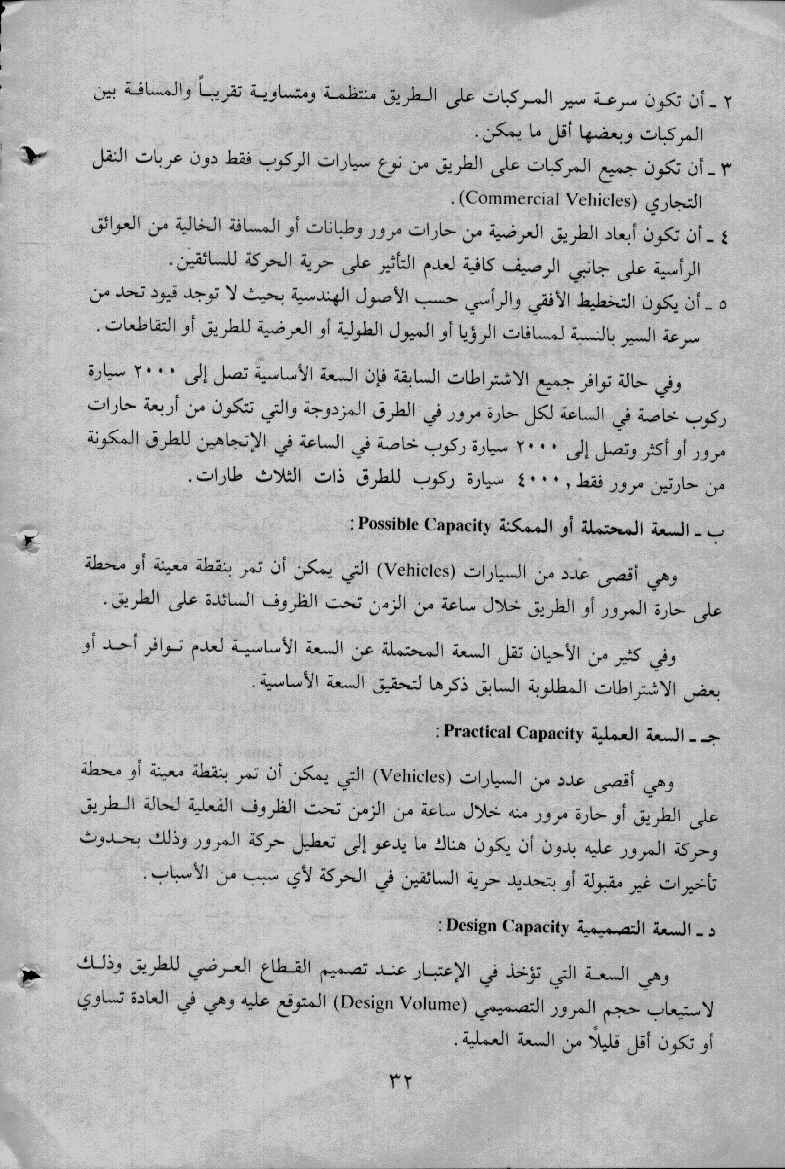 ٢ ـ أن تكون سرعة سير المركبات على الطريق منتظمة ومتساوية تقريباً والمسافة بين
المركبات وبعضها أقل ما يمكن.
٣ ـ أن تكون جميع المركبات على الطريق من نوع سيارات الركوب فقط دون عربات النقل
التجاري (Commercial Vehicles).
٤ ـ أن تكون أبعاد الطريق العرضية من حارات مرور وطبانات أو المسافة الخالية من العوائق
الرأسية على جانبي الرصيف كافية لعدم التأثير على حرية الحركة للسائقين.
٥ ـ أن يكون التخطيط الأفقي والرأسي حسب الأصول الهندسية بحيث لا توجد قيود تحد من
سرعة السير بالنسبة لمسافات الرؤيا أو الميول الطولية أو العرضية للطريق أو التقاطعات.
وفي حالة توافر جميع الاشتراطات السابقة فإن السعة الأساسية تصل إلى ٢٠٠٠ سيارة
ركوب خاصة في الساعة لكل حارة مرور في الطرق المزدوجة والتي تتكون من أربعة حارات
مرور أو أكثر وتصل إلى ٢٠٠٠ سيارة ركوب خاصة في الساعة في الإتجاهين للطرق المكونة
من حارتين مرور فقط, ٤٠٠٠ سيارة ركوب للطرق ذات الثلاث طارات.
ب ـ السعة المحتملة أو الممكنة Possible Capacity:
وهي أقصى عدد من السيارات (Vehicles) التي يمكن أن تمر بنقطة معينة أو محطة
على حارة المرور أو الطريق خلال ساعة من الزمن تحت الظروف السائدة على الطريق.
وفي كثير من الأحيان تقل السعة المحتملة عن السعة الأساسية لعدم توافر أحد أو
بعض الاشتراطات المطلوبة السابق ذكرها لتحقيق السعة الأساسية.
جـ ـ السعة العملية Practical Capacity:
وهي أقصى عدد من السيارات (Vehicles) التي يمكن أن تمر بنقطة معينة أو محطة
على الطريق أو حارة مرور منه خلال ساعة من الزمن تحت الظروف الفعلية لحالة الطريق
وحركة المرور عليه بدون أن يكون هناك ما يدعو إلى تعطيل حركة المرور وذلك بحدوث
تأخيرات غير مقبولة أو بتحديد حرية السائقين في الحركة لأي سبب من الأسباب.
د ـ السعة التصميمية Design Capacity:
وهي السعة التي تؤخذ في الإعتبار عند تصميم القطاع العرضي للطريق وذلك
لاستيعاب حجم المرور التصميمي (Design Volume) المتوقع عليه وهي في العادة تساوي
أو تكون أقل قليلًا من السعة العملية.
٣٢